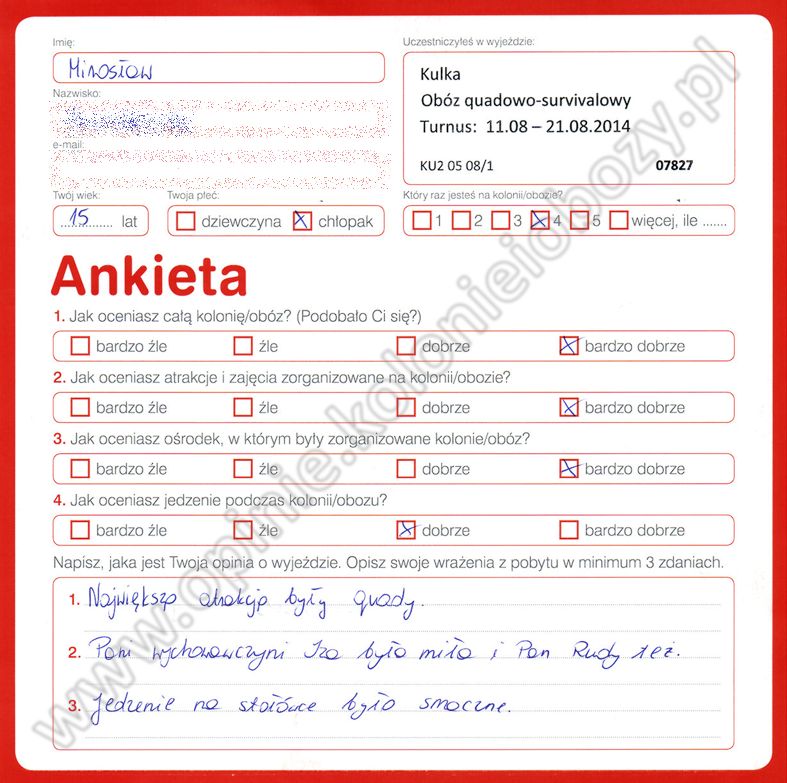 Imię:
Mirosław
Nazwisko:
e-mail:
Twój wiek:
15 lat
Twoja płeć:
dziewczyna chłopak
Uczestniczyłeś w wyjeździe:
Kulka
Obóz quadowo-survivalowy
Turnus: 11.08 – 21.08.2014
KU2 05 08/1 07827
Który raz jesteś na kolonii/obozie?
1 2 3 4 5 więcej, ile .......
Ankieta
1. Jak oceniasz całą kolonię/obóz? (Podobało Ci się?)
bardzo źle źle dobrze bardzo dobrze
2. Jak oceniasz atrakcje i zajęcia zorganizowane na kolonii/obozie?
bardzo źle źle dobrze bardzo dobrze
3. Jak oceniasz ośrodek, w którym były zorganizowane kolonie/obóz?
bardzo źle źle dobrze bardzo dobrze
4. Jak oceniasz jedzenie podczas kolonii/obozu?
bardzo źle źle dobrze bardzo dobrze
Napisz, jaka jest Twoja opinia o wyjeździe. Opisz swoje wrażenia z pobytu w minimum 3 zdaniach.
1. Największą atrakcją były quady.
2. Pani wychowawczyni Iza była miła i Pan Rudy też.
3. Jedzenie na stołówce było smaczne.
www.opinie.kolonieiobozy.pl